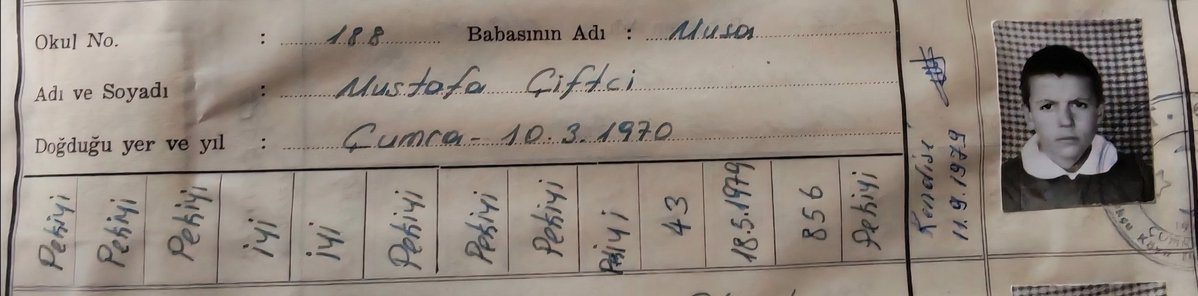 Okul No. : 188 Babasının Adı : Musa
Adı ve Soyadı : Mustafa Çiftci
Doğduğu yer ve yıl : Çumra - 10.3.1970
Pekiyi
Pekiyi
Pekiyi
İyi
İyi
Pekiyi
Pekiyi
Pekiyi
Pekiyi
43
18.5.1979
856
Pekiyi
Kendisi
11.9.1979